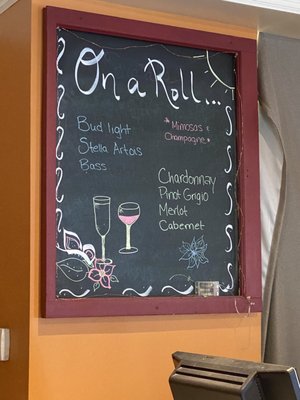 On a Roll...
Bud light
Stella Artois
Bass
Mimosas &
Champagne
Chardonnay
Pinot Grigio
Merlot
Cabernet